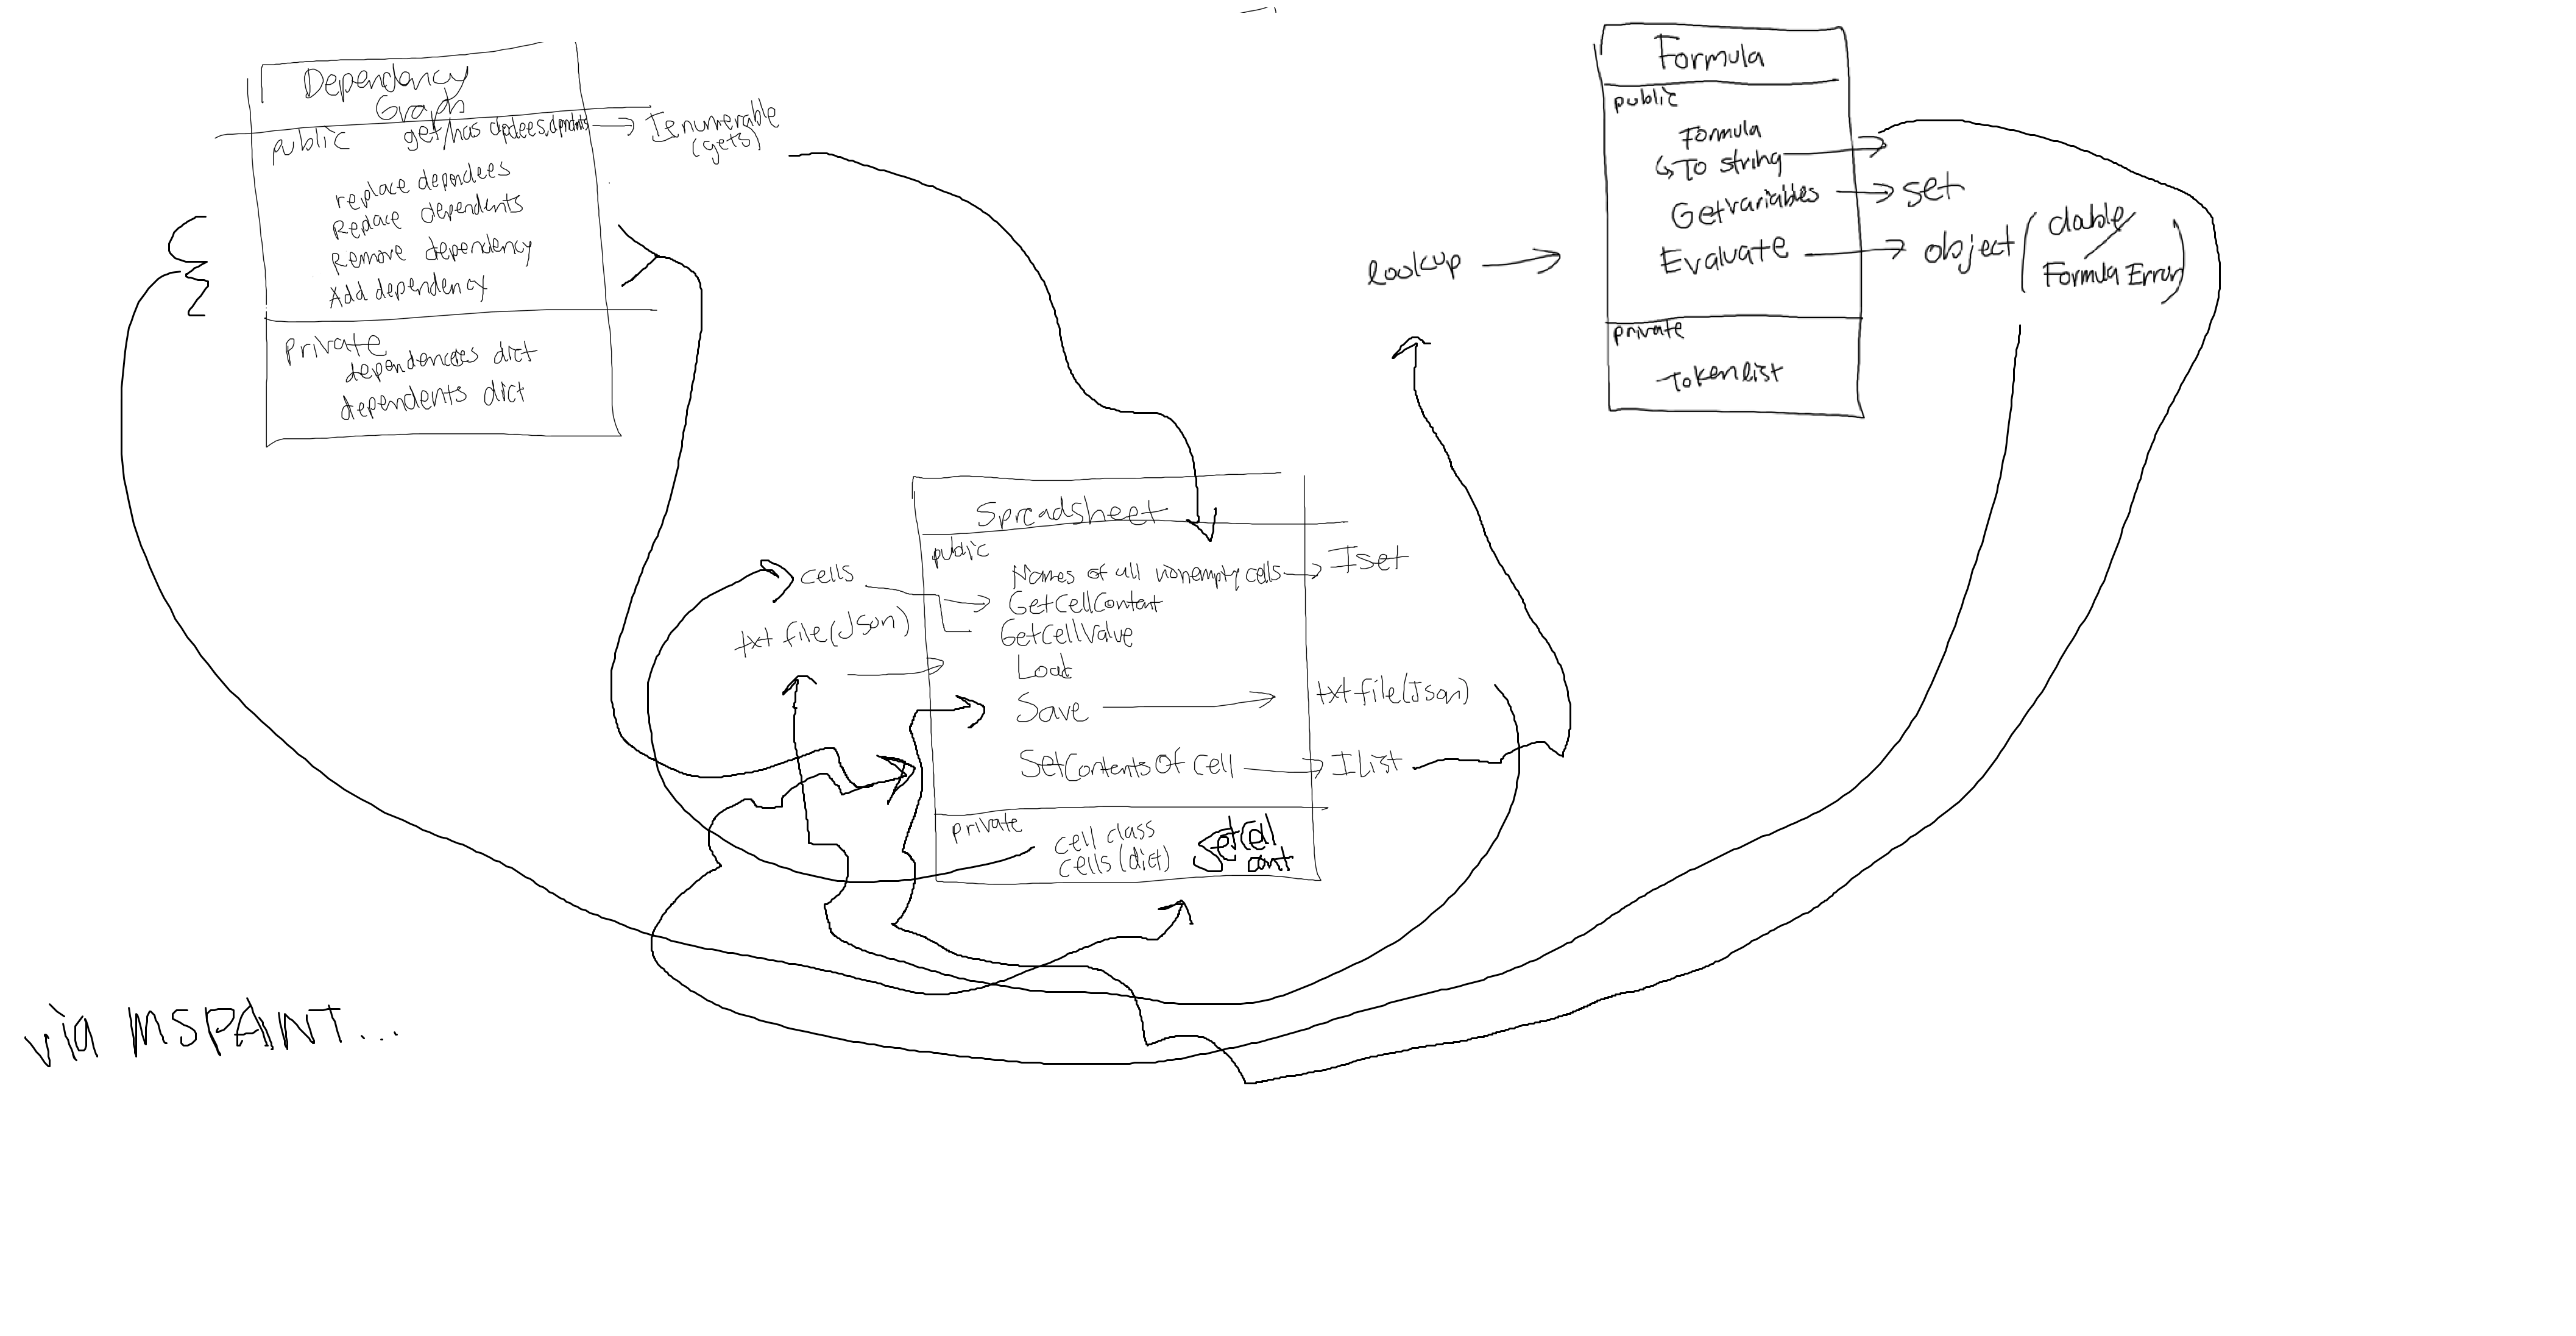 Dependancy
Graph
public get/has
Ienumerable
(gets)
replace dependees
Replace dependents
Remove dependency
Add dependency
private
dict
dependents dict
Formula
public
Formula
↳ To string
Getvariables → set
lookup → Evaluate → object (
Formula Error)
private
Token list
Spreadsheet
public
Names of all nonempty cells → Iset
cells
GetCellContent
txt file (Json)
GetCellValue
Load
Save → txt file (Json)
SetContentsOf cell → IList
private
cell class
cells (dict)
SetCell
cont
via MSPAINT...